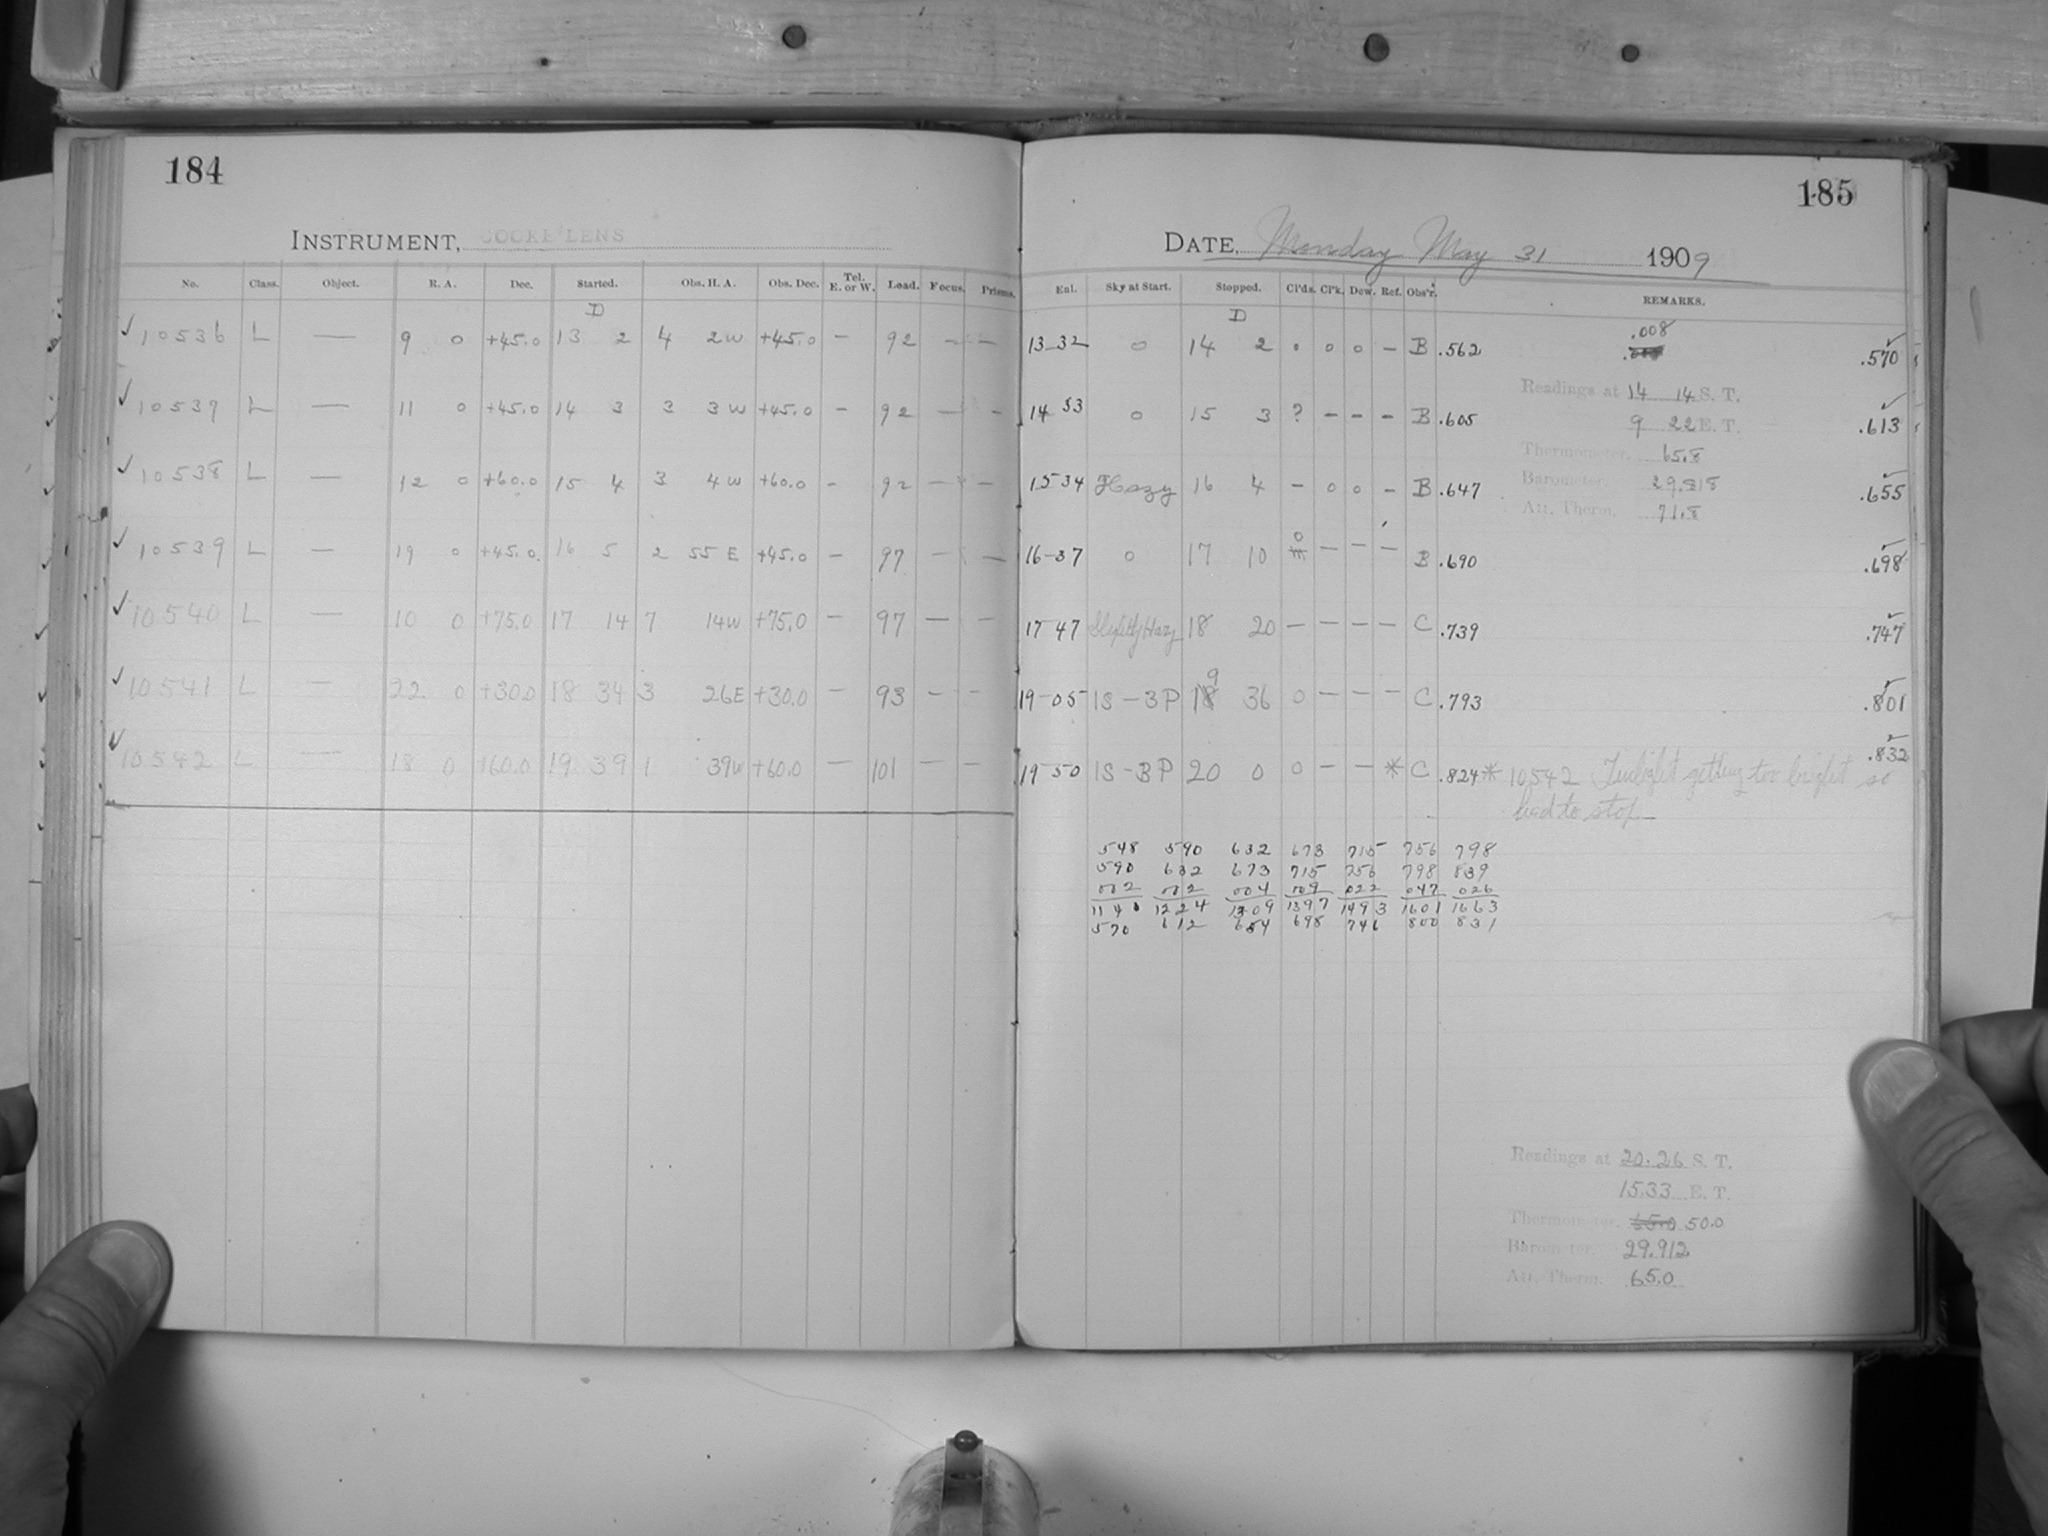 184
INSTRUMENT, COOKE LENS
No. Class. Object. R. A. Dec. Started. Obs. H. A. Obs. Dec. Tel. E. or W. Load. Focus. Prisms.
D
✓ 10536 L — 9 0 +45.0 13 2 4 2W +45.0 – 92 – –
✓ 10537 L — 11 0 +45.0 14 3 3 3W +45.0 – 92 – –
✓ 10538 L — 12 0 +60.0 15 4 3 4W +60.0 – 92 – –
✓ 10539 L — 19 0 +45.0 16 5 2 55 E +45.0 – 97 – –
✓ 10540 L — 10 0 +75.0 17 14 7 14W +75.0 – 97 – –
✓ 10541 L — 22 0 +30.0 18 34 3 26E +30.0 – 93 – –
✓ 10542 L — 18 0 +60.0 19 39 1 39W +60.0 – 101 – –
185
DATE, Monday May 31 1909
Enl. Sky at Start. Stopped. Cl'ds. Cl'k. Dew. Ref. Obs'r. REMARKS.
D
13-32 0 14 2 0 0 0 – B .562 .008 .570
Readings at 14 14 S. T.
14 33 0 15 3 ? – – – B .605 .613
9 22 E. T.
Thermometer, 65.8
15 34 Hazy 16 4 – 0 0 – B .647 .655
Barometer,
Att. Therm. 71.8
16-37 0 17 10 0 – – – B .690 .698
17 47 Slightly Hazy 18 20 – – – – C .739 .747
19-05 1S-3P 19 36 0 – – – C .793 .801
.832
19-50 1S-3P 20 0 0 – – * C .824 * 10542 Twilight getting too bright so
had to stop
548 590 632 673 715 756 798
590 632 673 715 756 798 839
002 002 004 009 022 047 026
1140 1224 1309 1397 1493 1601 1663
570 612 654 698 746 800 831
Readings at 20.26 S. T.
15.33 E. T.
Thermometer, 65.0 50.0
Barometer, 29.912
Att. Therm. 65.0